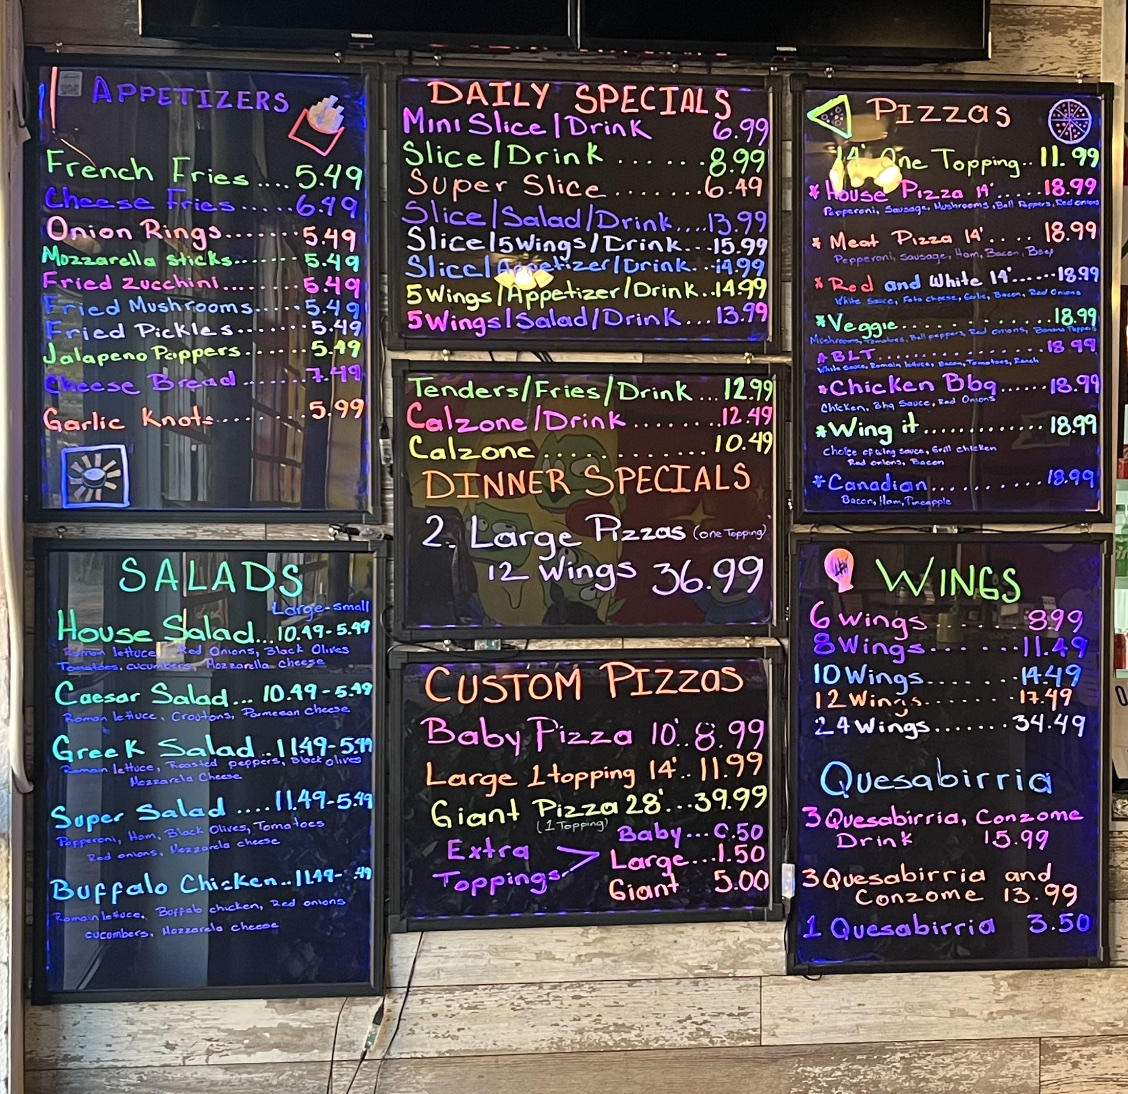 APPETIZERS
French Fries....5.49
Cheese Fries.....6.49
Onion Rings.......5.49
Mozzarella sticks.....5.49
Fried Zucchini.....5.49
Fried Mushrooms....5.49
Fried Pickles.....5.49
Jalapeno Poppers.....5.49
Cheese Bread......7.49
Garlic Knots........5.99
SALADS
Large-small
House Salad...10.49-5.49
Roman lettuce, Red Onions, Black Olives
Tomatoes, cucumbers, Mozzarella cheese
Caesar Salad...10.49-5.49
Roman lettuce, Croutons, Parmesan cheese
Greek Salad..11.49-5.49
Roman lettuce, Roasted peppers, Black olives
Mozzarela Cheese
Super Salad ....11.49-5.49
Pepperoni, Ham, Black Olives, Tomatoes
Red onions, Mozzarela cheese
Buffalo Chicken..11.49- .49
Romain lettuce, Buffalo chicken, Red onions
cucombers, Mozzarela cheese
DAILY SPECIALS
Mini Slice/Drink 6.99
Slice/Drink .......8.99
Super Slice .......6.49
Slice/Salad/Drink....13.99
Slice/5Wings/Drink...15.99
Slice/Appetizer/Drink..14.99
5Wings/Appetizer/Drink..14.99
5Wings/Salad/Drink...13.99
Tenders/Fries/Drink...12.99
Calzone/Drink........12.49
Calzone..............10.49
DINNER SPECIALS
2. Large Pizzas (one Topping)
12 wings 36.99
CUSTOM PIZZAS
Baby Pizza 10'..8.99
Large 1 topping 14'..11.99
Giant Pizza 28'...39.99
(1 Topping)
Extra Toppings
Baby...0.50
Large...1.50
Giant 5.00
Pizzas
14' One Topping..11.99
*House Pizza 14'......18.99
Pepperoni, Sausage, Mushrooms, Bell Peppers, Red onions
*Meat Pizza 14'.....18.99
Pepperoni, Sausage, Ham, Bacon, Beef
*Red and White 14'......18.99
White Sauce, Feta cheese, Garlic, Bacon, Red Onions
*Veggie..............18.99
Mushrooms, Tomatoes, Bell peppers, Red onions, Banana Peppers
*BLT..................18.99
White Sauce, Romain lettuce, Bacon, Tomatoes, Ranch
*Chicken Bbq......18.99
Chicken, Bbq Sauce, Red Onions
*Wing it............18.99
choice of wing sauce, Grill chicken
Red onions, Bacon
*Canadian...........18.99
Bacon, Ham, Pineapple
WINGS
6 wings.........8.99
8 Wings.......11.49
10 Wings.......14.49
12 Wings.......17.49
24 Wings......34.49
Quesabirria
3 Quesabirria, Conzome
Drink 15.99
3 Quesabirria and
Conzome 13.99
1 Quesabirria 3.50